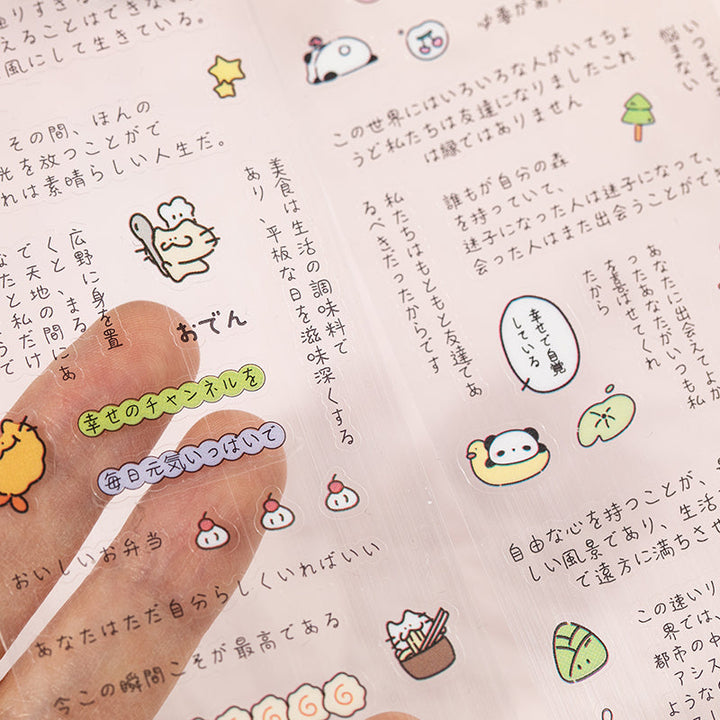 えることはできない
風にして生きている。
その間、ほんの
光を放つことがで
れは素晴らしい人生だ。
美食は生活の調味料で
あり、平板な日を滋味深くする
広野に身を置
くと、まるで
天地の間にあ
おでん
幸せのチャンネルを
毎日元気いっぱいで
おいしいお弁当
あなたはただ自分らしくいればいい
今この瞬間こそが最高である
この世界にはいろいろな人がいてちょ
うど私たちは友達になりましたこれ
は縁ではありません
いつまで
悩まない
私たちはもともと友達であ
るべきだったからです
誰もが自分の森
を持っていて、
迷子になった人は迷子になって、
会った人はまた出会うことができ
あなたに出会えてよか
ったあなたがいつも私
を喜ばせてくれ
たから
幸せで自覚
している
自由な心を持つことが、
しい風景であり、生活
で遠方に満ちさせ
この速いリ
界では、
都市の中
アシス
ような